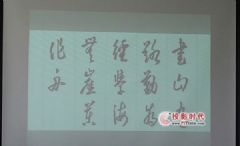 書山有
路勤為
徑學海
無崖苦
作舟
投影时代